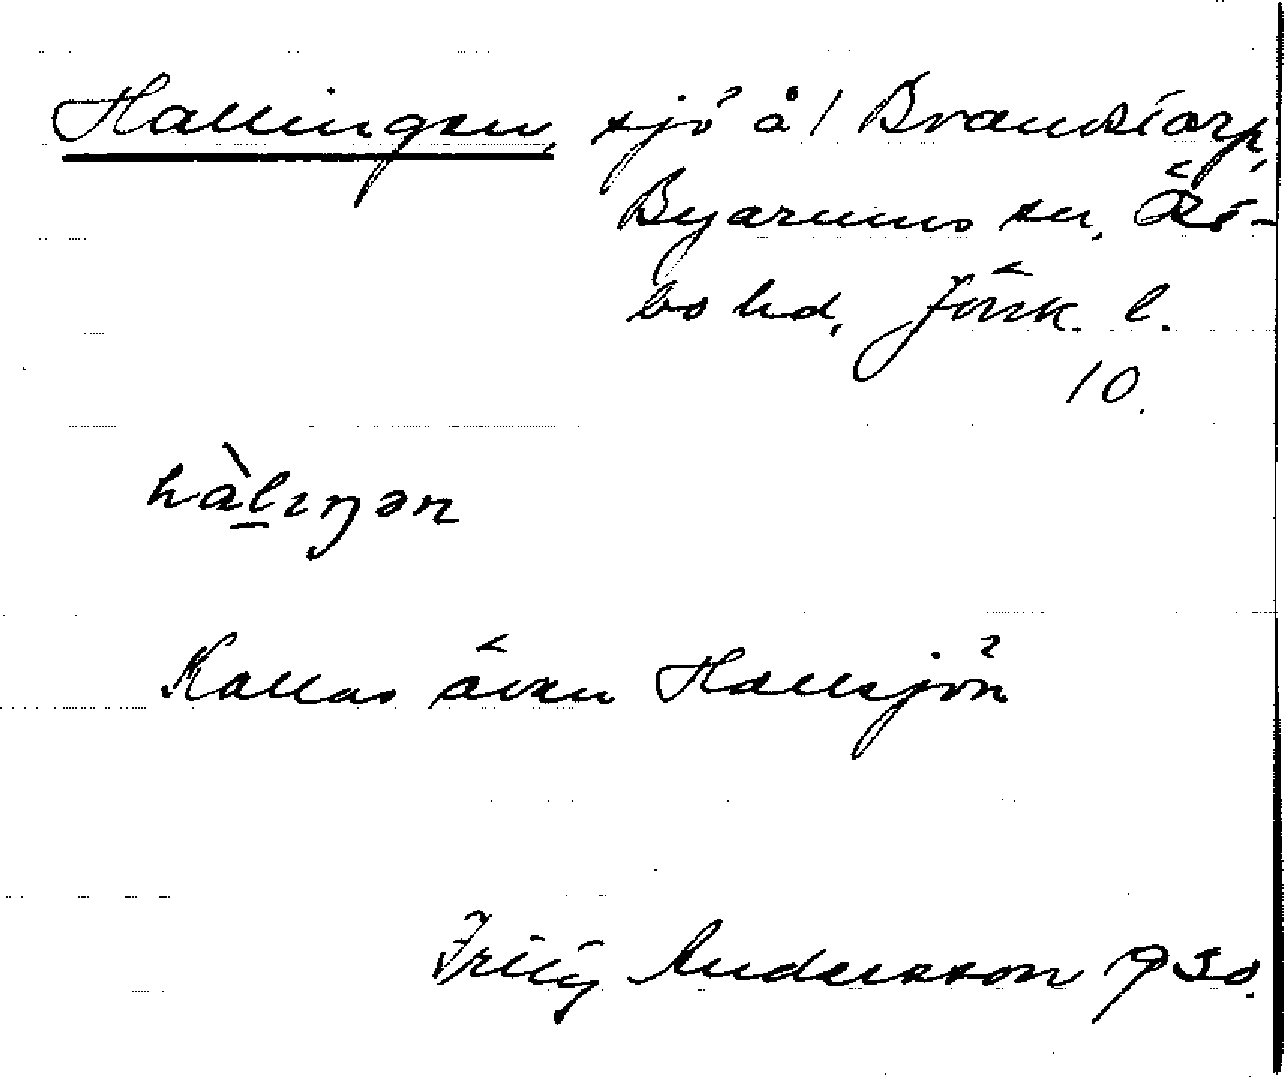 Hallingen, sjö å / Brandstorp,
Byarums sn, Öst-
bo hd, Jönk. l.
10.
hàlıŋən
Kallas även Hallsjön
Fritz Andersson 1930.